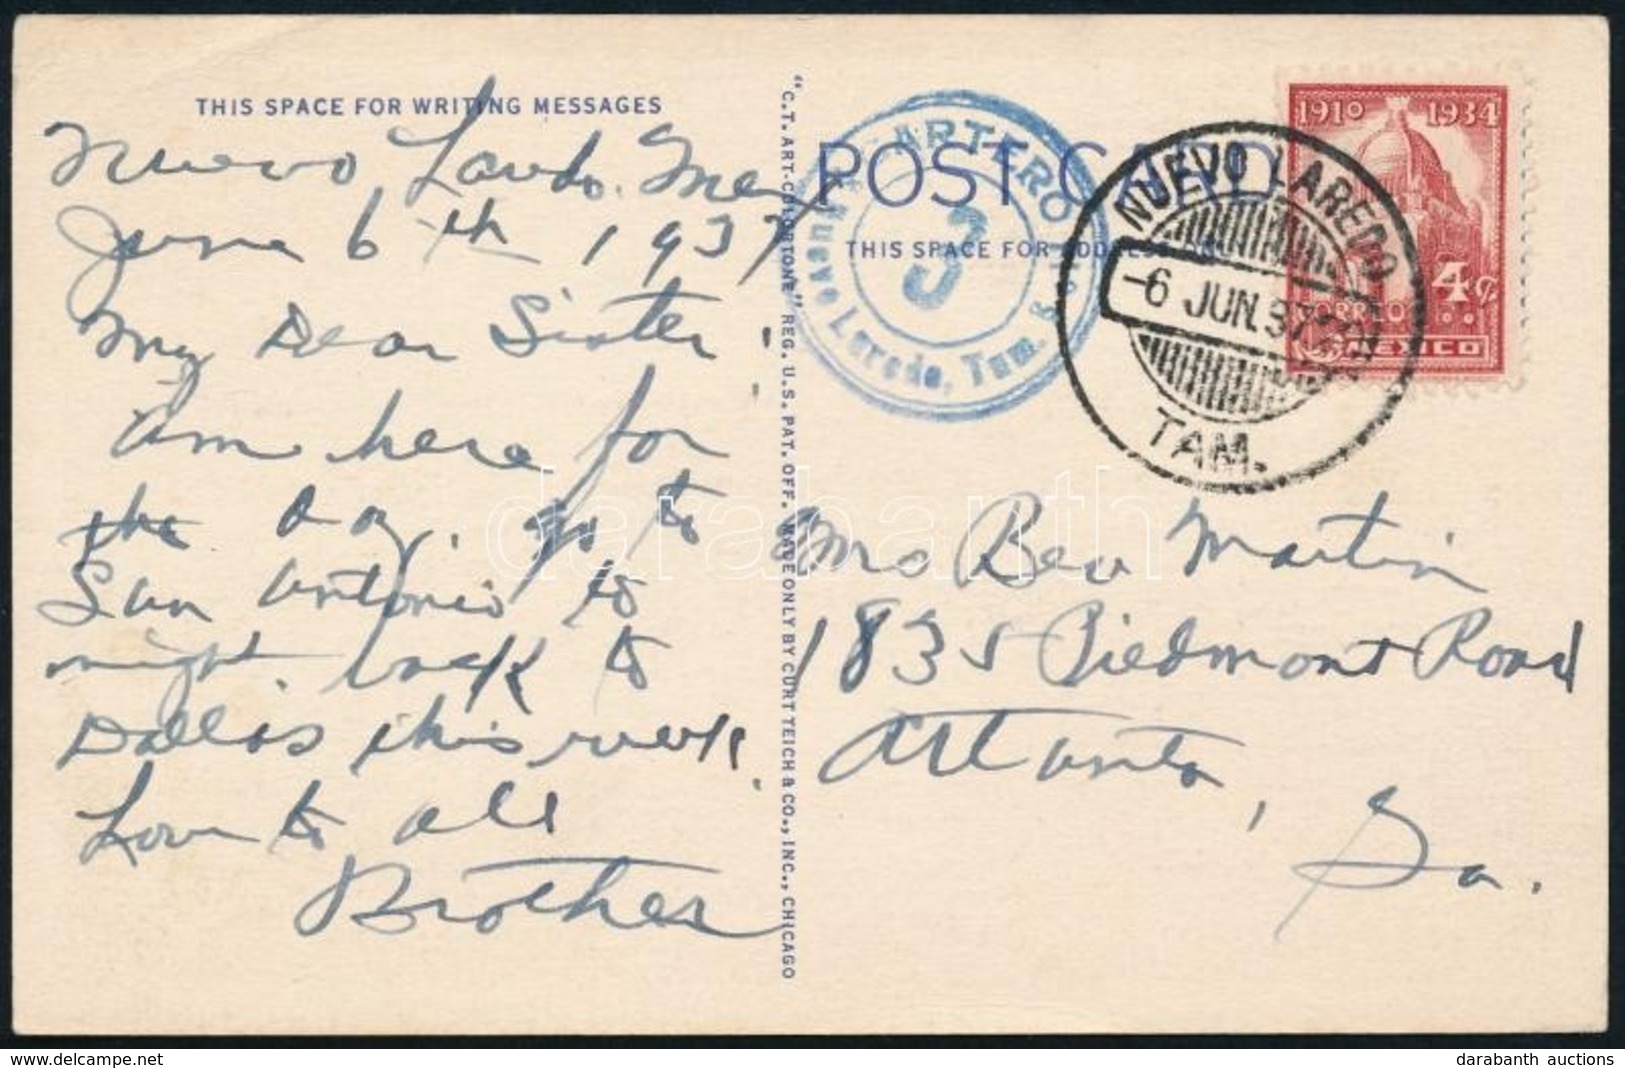 THIS SPACE FOR WRITING MESSAGES
Nuevo Laredo. Mex
June 6th 1937
My Dear Sister
Am here for
the day. go to
San Antonio to
night back to
Dallas this week.
Love to all
Brother
"C.T. ART-COLORTONE" REG. U.S. PAT. OFF. MADE ONLY BY CURT TEICH & CO., INC., CHICAGO
POST CARD
THIS SPACE FOR ADDRESS ONLY
CARTERO
3
Nuevo Laredo, Tam.
NUEVO LAREDO
-6 JUN. 37
TAM.
1910 1934
4 c
CORREO
MEXICO
Mrs Ben Martin
1835 Piedmont Road
Atlanta,
Ga.
darabanth
darabanth auctions